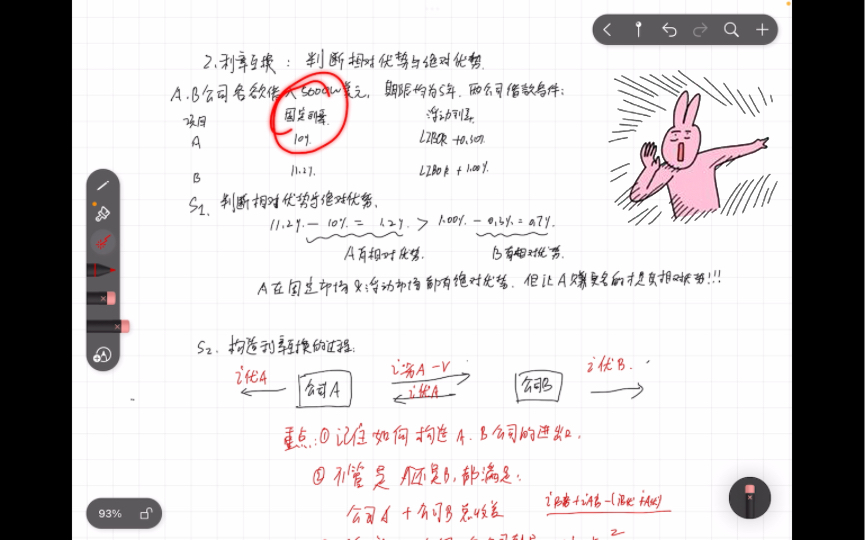 2.利率互换：判断相对优势与绝对优势.
A.B公司各欲借入5000W美元，期限均为5年.两公司借款条件：
项目 固定利率. 浮动利率.
A 10%. LIBOR+0.30%
B 11.2%. LIBOR+1.00%.
S1. 判断相对优势与绝对优势.
11.2%-10%=1.2% > 1.00%-0.3%=0.7%.
A有相对优势. B有相对优势.
A在固定市场&浮动市场都有绝对优势.但让A赚更多的才是其相对优势!!!
S2.构造利率互换的过程:
i优A i劣A-V i优B.
公司A i优A 公司B
重点:①记住如何构造A.B公司的进出口.
②不管是A还是B,都满足:
公司A+公司B总收益
93%